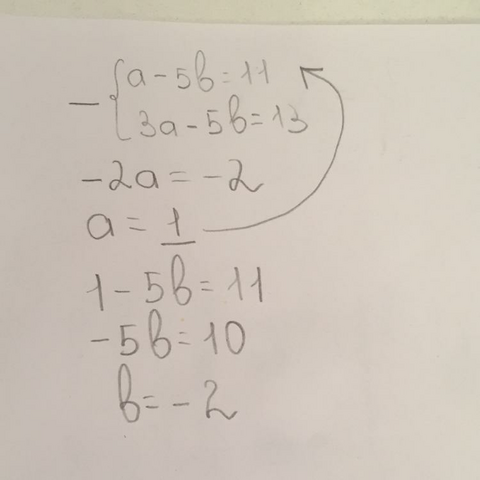 - { a - 5b = 11
3a - 5b = 13
-2a = -2
a = 1
1 - 5b = 11
-5b = 10
b = -2